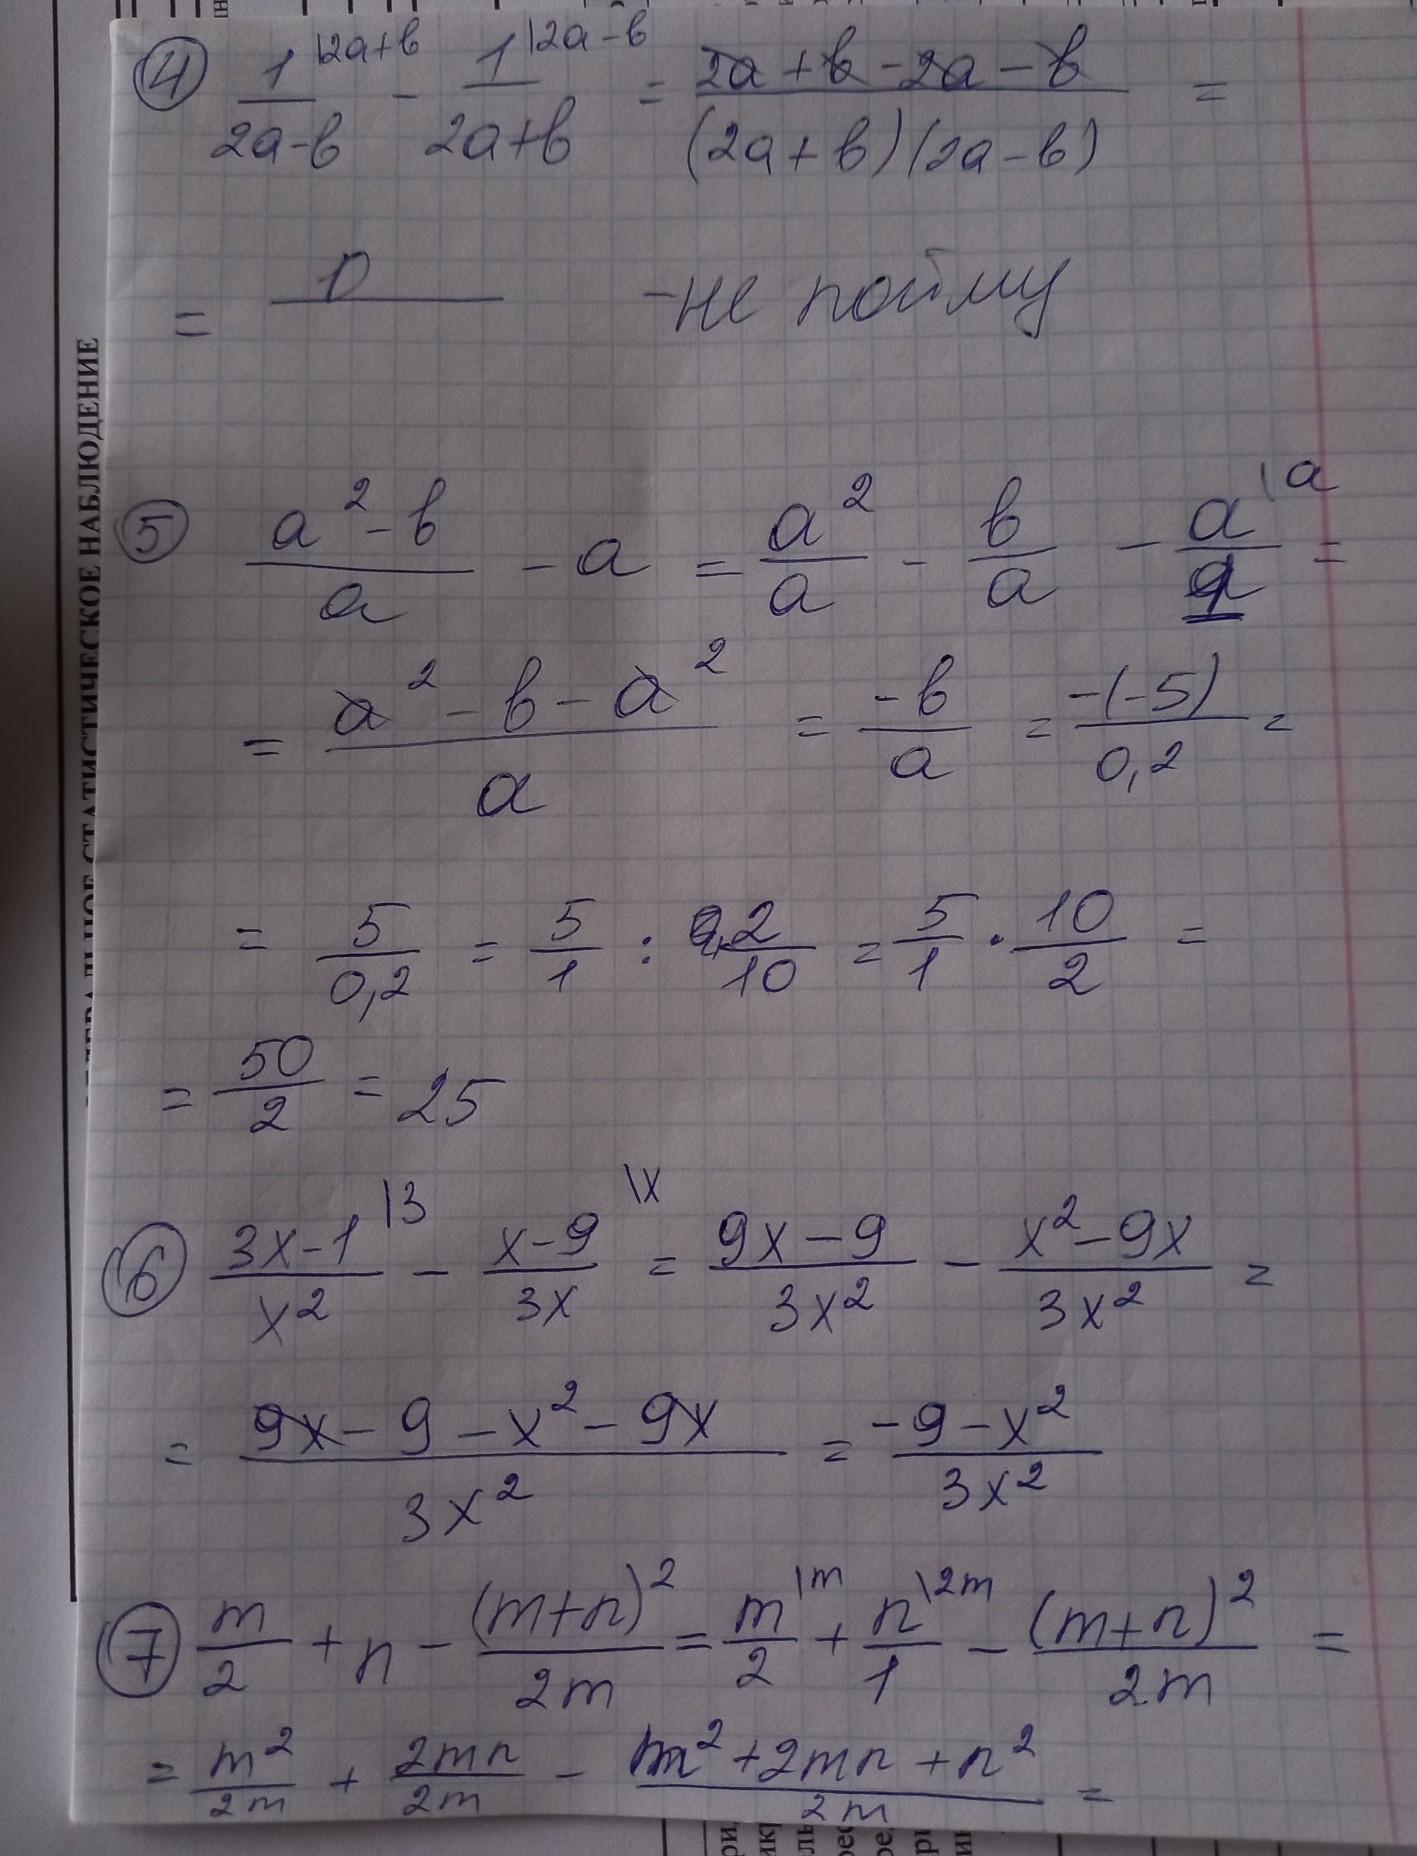 ④ 1/(2a-в) \2a+в - 1/(2a+в) \2a-в = (2a+в-2a-в)/((2a+в)(2a-в)) =
= 0/ -не пойму
⑤ (a²-в)/a - a = a²/a - в/a - a/1 \a =
= (a²-в-a²)/a = -в/a = -(-5)/0,2 =
= 5/0,2 = 5/1 : 2/10 = 5/1 · 10/2 =
= 50/2 = 25
⑥ (3x-1)/x² \3 - (x-9)/3x \x = (9x-9)/3x² - (x²-9x)/3x² =
= (9x-9-x²-9x)/3x² = (-9-x²)/3x²
⑦ m/2 + n - (m+n)²/2m = m/2 \m + n/1 \2m - (m+n)²/2m =
= m²/2m + 2mn/2m - (m²+2mn+n²)/2m =
СТАТИСТИЧЕСКОЕ НАБЛЮДЕНИЕ